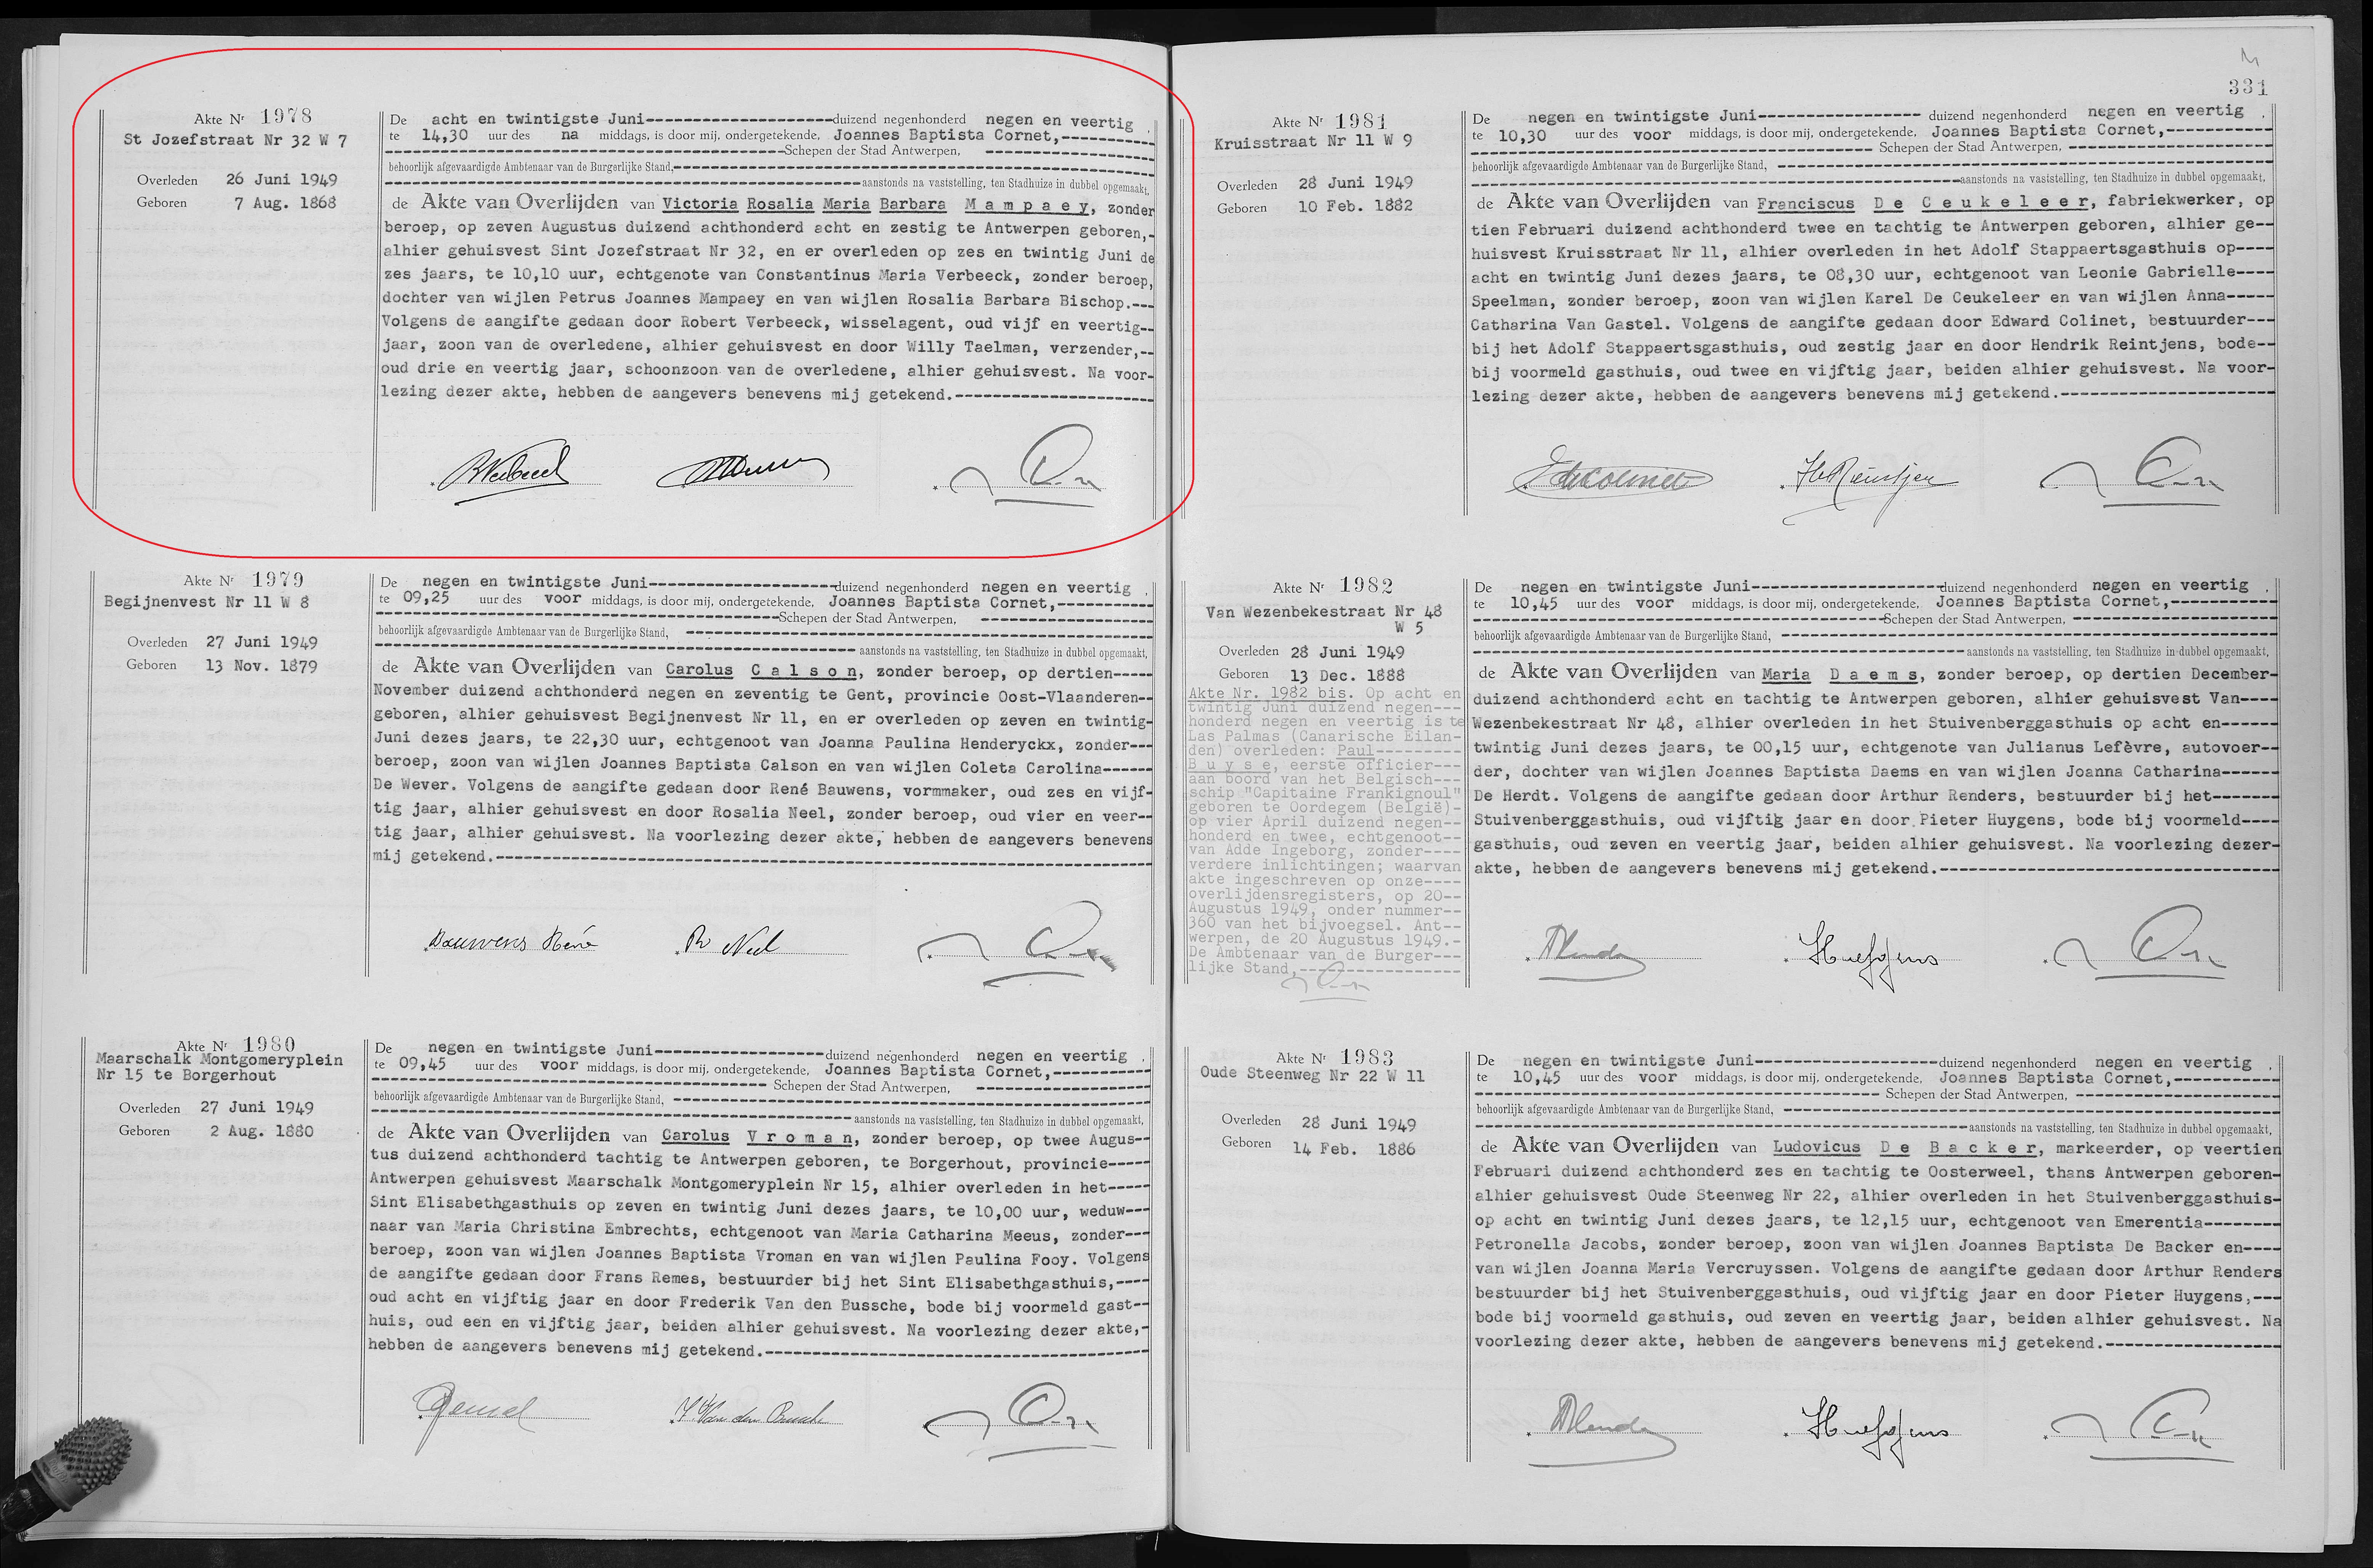 M
331
Akte Nr 1978
St Jozefstraat Nr 32 W 7
Overleden 26 Juni 1949
Geboren 7 Aug. 1868
De acht en twintigste Juni--------------------duizend negenhonderd negen en veertig .
te 14,30 uur des na middags, is door mij, ondergetekende, Joannes Baptista Cornet,----------
----------Schepen der Stad Antwerpen, ----------
behoorlijk afgevaardigde Ambtenaar van de Burgerlijke Stand,----------
----------aanstonds na vaststelling, ten Stadhuize in dubbel opgemaakt,
de Akte van Overlijden van Victoria Rosalia Maria Barbara M a m p a e y, zonder
beroep, op zeven Augustus duizend achthonderd acht en zestig te Antwerpen geboren,-
alhier gehuisvest Sint Jozefstraat Nr 32, en er overleden op zes en twintig Juni de
zes jaars, te 10,10 uur, echtgenote van Constantinus Maria Verbeeck, zonder beroep,
dochter van wijlen Petrus Joannes Mampaey en van wijlen Rosalia Barbara Bischop.---
Volgens de aangifte gedaan door Robert Verbeeck, wisselagent, oud vijf en veertig--
jaar, zoon van de overledene, alhier gehuisvest en door Willy Taelman, verzender,--
oud drie en veertig jaar, schoonzoon van de overledene, alhier gehuisvest. Na voor-
lezing dezer akte, hebben de aangevers benevens mij getekend.---------------------
RVerbeeck
Akte Nr 1979
Begijnenvest Nr 11 W 8
Overleden 27 Juni 1949
Geboren 13 Nov. 1879
De negen en twintigste Juni--------------------duizend negenhonderd negen en veertig .
te 09,25 uur des voor middags, is door mij, ondergetekende, Joannes Baptista Cornet,----------
----------Schepen der Stad Antwerpen, ----------
behoorlijk afgevaardigde Ambtenaar van de Burgerlijke Stand, ----------
----------aanstonds na vaststelling, ten Stadhuize in dubbel opgemaakt,
de Akte van Overlijden van Carolus C a l s o n, zonder beroep, op dertien-----
November duizend achthonderd negen en zeventig te Gent, provincie Oost-Vlaanderen--
geboren, alhier gehuisvest Begijnenvest Nr 11, en er overleden op zeven en twintig-
Juni dezes jaars, te 22,30 uur, echtgenoot van Joanna Paulina Henderyckx, zonder---
beroep, zoon van wijlen Joannes Baptista Calson en van wijlen Coleta Carolina------
De Wever. Volgens de aangifte gedaan door René Bauwens, vormmaker, oud zes en vijf-
tig jaar, alhier gehuisvest en door Rosalia Neel, zonder beroep, oud vier en veer--
tig jaar, alhier gehuisvest. Na voorlezing dezer akte, hebben de aangevers benevens
mij getekend.----------
Bauwens René R Neel
Akte Nr 1980
Maarschalk Montgomeryplein
Nr 15 te Borgerhout
Overleden 27 Juni 1949
Geboren 2 Aug. 1880
De negen en twintigste Juni--------------------duizend negenhonderd negen en veertig .
te 09,45 uur des voor middags, is door mij, ondergetekende, Joannes Baptista Cornet,----------
----------Schepen der Stad Antwerpen, ----------
behoorlijk afgevaardigde Ambtenaar van de Burgerlijke Stand, ----------
----------aanstonds na vaststelling, ten Stadhuize in dubbel opgemaakt,
de Akte van Overlijden van Carolus V r o m a n, zonder beroep, op twee Augus--
tus duizend achthonderd tachtig te Antwerpen geboren, te Borgerhout, provincie-----
Antwerpen gehuisvest Maarschalk Montgomeryplein Nr 15, alhier overleden in het-----
Sint Elisabethgasthuis op zeven en twintig Juni dezes jaars, te 10,00 uur, weduw---
naar van Maria Christina Embrechts, echtgenoot van Maria Catharina Meeus, zonder---
beroep, zoon van wijlen Joannes Baptista Vroman en van wijlen Paulina Fooy. Volgens
de aangifte gedaan door Frans Remes, bestuurder bij het Sint Elisabethgasthuis,----
oud acht en vijftig jaar en door Frederik Van den Bussche, bode bij voormeld gast--
huis, oud een en vijftig jaar, beiden alhier gehuisvest. Na voorlezing dezer akte,-
hebben de aangevers benevens mij getekend.----------
F Van den Bussche
Akte Nr 1981
Kruisstraat Nr 11 W 9
Overleden 28 Juni 1949
Geboren 10 Feb. 1882
De negen en twintigste Juni------------------ duizend negenhonderd negen en veertig .
te 10,30 uur des voor middags, is door mij, ondergetekende, Joannes Baptista Cornet,----------
---------- Schepen der Stad Antwerpen, ----------
behoorlijk afgevaardigde Ambtenaar van de Burgerlijke Stand, ----------
----------aanstonds na vaststelling, ten Stadhuize in dubbel opgemaakt,
de Akte van Overlijden van Franciscus D e C e u k e l e e r, fabriekwerker, op
tien Februari duizend achthonderd twee en tachtig te Antwerpen geboren, alhier ge--
huisvest Kruisstraat Nr 11, alhier overleden in het Adolf Stappaertsgasthuis op----
acht en twintig Juni dezes jaars, te 08,30 uur, echtgenoot van Leonie Gabrielle----
Speelman, zonder beroep, zoon van wijlen Karel De Ceukeleer en van wijlen Anna-----
Catharina Van Gastel. Volgens de aangifte gedaan door Edward Colinet, bestuurder---
bij het Adolf Stappaertsgasthuis, oud zestig jaar en door Hendrik Reintjens, bode--
bij voormeld gasthuis, oud twee en vijftig jaar, beiden alhier gehuisvest. Na voor-
lezing dezer akte, hebben de aangevers benevens mij getekend.----------
EdColinet HReintjens
Akte Nr 1982
Van Wezenbekestraat Nr 48
W 5
Overleden 28 Juni 1949
Geboren 13 Dec. 1888
Akte Nr. 1982 bis. Op acht en
twintig Juni duizend negen---
honderd negen en veertig is te
Las Palmas (Canarische Eilan-
den) overleden: Paul---------
B u y s e, eerste officier---
aan boord van het Belgisch---
schip "Capitaine Frankignoul"
geboren te Oordegem (België)-
op vier April duizend negen--
honderd en twee, echtgenoot--
van Adde Ingeborg, zonder----
verdere inlichtingen; waarvan
akte ingeschreven op onze----
overlijdensregisters, op 20--
Augustus 1949, onder nummer--
360 van het bijvoegsel. Ant--
werpen, de 20 Augustus 1949.-
De Ambtenaar van de Burger---
lijke Stand,----------
De negen en twintigste Juni--------------------duizend negenhonderd negen en veertig .
te 10,45 uur des voor middags, is door mij, ondergetekende, Joannes Baptista Cornet,----------
----------Schepen der Stad Antwerpen, ----------
behoorlijk afgevaardigde Ambtenaar van de Burgerlijke Stand, ----------
----------aanstonds na vaststelling, ten Stadhuize in dubbel opgemaakt,
de Akte van Overlijden van Maria D a e m s, zonder beroep, op dertien December-
duizend achthonderd acht en tachtig te Antwerpen geboren, alhier gehuisvest Van----
Wezenbekestraat Nr 48, alhier overleden in het Stuivenberggasthuis op acht en------
twintig Juni dezes jaars, te 00,15 uur, echtgenote van Julianus Lefèvre, autovoer--
der, dochter van wijlen Joannes Baptista Daems en van wijlen Joanna Catharina------
De Herdt. Volgens de aangifte gedaan door Arthur Renders, bestuurder bij het-------
Stuivenberggasthuis, oud vijftig jaar en door Pieter Huygens, bode bij voormeld----
gasthuis, oud zeven en veertig jaar, beiden alhier gehuisvest. Na voorlezing dezer-
akte, hebben de aangevers benevens mij getekend.----------
ARenders Huygens
Akte Nr 1983
Oude Steenweg Nr 22 W 11
Overleden 28 Juni 1949
Geboren 14 Feb. 1886
De negen en twintigste Juni--------------------duizend negenhonderd negen en veertig .
te 10,45 uur des voor middags, is door mij, ondergetekende, Joannes Baptista Cornet,----------
---------- Schepen der Stad Antwerpen, ----------
behoorlijk afgevaardigde Ambtenaar van de Burgerlijke Stand, ----------
----------aanstonds na vaststelling, ten Stadhuize in dubbel opgemaakt,
de Akte van Overlijden van Ludovicus D e B a c k e r, markeerder, op veertien
Februari duizend achthonderd zes en tachtig te Oosterweel, thans Antwerpen geboren-
alhier gehuisvest Oude Steenweg Nr 22, alhier overleden in het Stuivenberggasthuis-
op acht en twintig Juni dezes jaars, te 12,15 uur, echtgenoot van Emerentia--------
Petronella Jacobs, zonder beroep, zoon van wijlen Joannes Baptista De Backer en----
van wijlen Joanna Maria Vercruyssen. Volgens de aangifte gedaan door Arthur Renders
bestuurder bij het Stuivenberggasthuis, oud vijftig jaar en door Pieter Huygens,---
bode bij voormeld gasthuis, oud zeven en veertig jaar, beiden alhier gehuisvest. Na
voorlezing dezer akte, hebben de aangevers benevens mij getekend.----------
ARenders Huygens